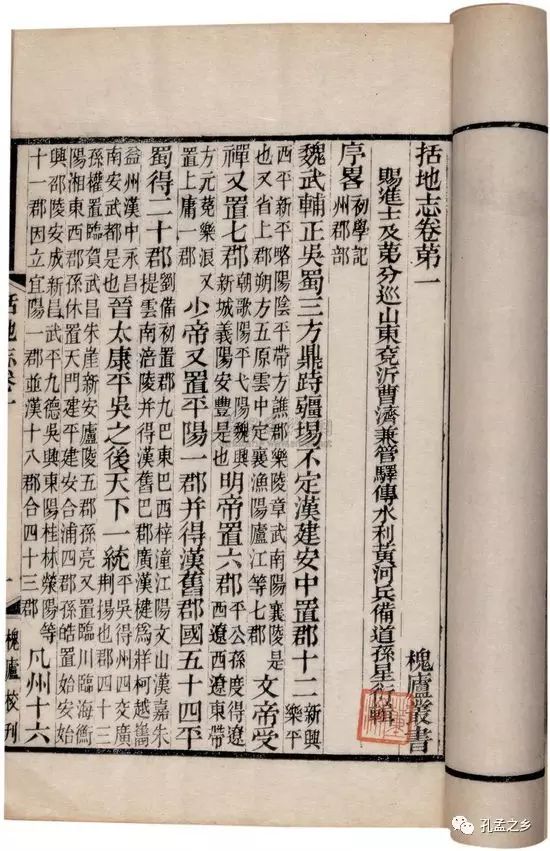 括地志卷第一 槐廬叢書
賜進士及第分巡山東兗沂曹濟兼管驛傳水利黃河兵備道孫星衍輯
序畧 初學記
州郡部
魏武輔正吳蜀三方鼎跱疆埸不定漢建安中置郡十二 新興
樂平
西平新平略陽陰平帶方譙郡樂陵章武南陽襄陵是
也又省上郡朔方五原雲中定襄漁陽廬江等七郡 文帝受
禪又置七郡 朝歌陽平弋陽魏興
新城義陽安豐是也 明帝置六郡 平公孫度得遼
西遼西遼東帶
方元菟樂浪又
置上庸一郡 少帝又置平陽一郡并得漢舊郡國五十四平
蜀得二十郡 劉備初置郡九巴東巴西梓潼江陽文山漢嘉朱
提雲南涪陵并得漢舊巴郡廣漢犍爲牂柯越巂
益州漢中永昌
南安武都是也 晉太康平吳之後天下一統 平吳得州四交廣
荆揚也郡四十三
孫權置臨賀武昌朱崖新安廬陵五郡孫亮又置臨川臨海衡
陽湘東四郡孫休置天門建平建安合浦四郡孫皓置始安始
興邵陵安成新昌武平九德吳興東陽桂林滎陽等
十一郡因立宜陽一郡並漢十八郡合四十三郡 凡州十六
括地志卷一 一 槐廬校刊
孔孟之乡